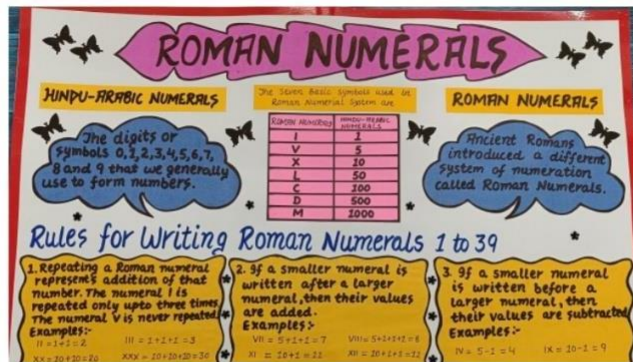 ROMAN NUMERALS
HINDU-ARABIC NUMERALS
The digits or
symbols 0,1,2,3,4,5,6,7,
8 and 9 that we generally
use to form numbers.
The Seven Basic Symbols used in
Roman Numerial System are
ROMAN NUMERALS HINDU-ARABIC NUMERALS
I 1
V 5
X 10
L 50
C 100
D 500
M 1000
ROMAN NUMERALS
Ancient Romans
introduced a different
system of numeration
called Roman Numerals.
Rules for Writing Roman Numerals 1 to 39
1. Repeating a Roman numeral
represents addition of that
number. The numeral I is
repeated only upto three times.
The numeral V is never repeated.
Examples:-
II = 1+1 = 2 III = 1+1+1 = 3
XX = 10+10 = 20 XXX = 10+10+10 = 30
2. If a smaller numeral is
written after a larger
numeral, then their values
are added.
Examples:-
VII = 5+1+1 = 7
XI = 10+1 = 11
3. If a smaller numeral
is written before a
larger numeral, then
their values are subtracted
Examples:-
IV = 5-1 = 4 IX = 10-1 = 9